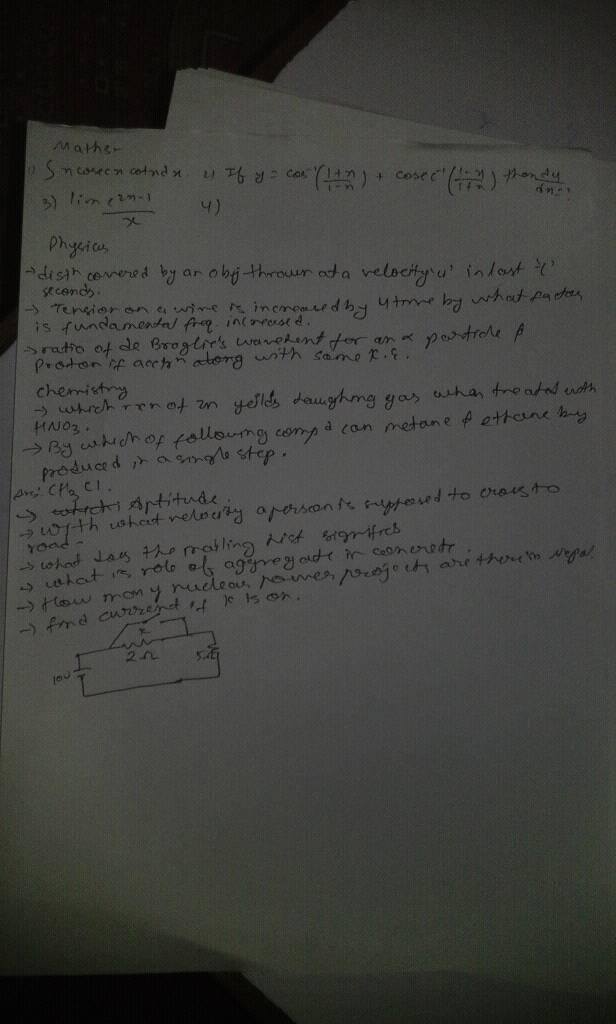 Maths:-
1) ∫ x cosec x cot x dx 2) If y = cos⁻¹(1+x/1-x) + cosec⁻¹(1-x/1+x) then dy/dx = ?
3) lim e^2x-1/x 4)
Physics
→ distn covered by an obj thrown at a velocity 'u' in last 't'
seconds.
→ Tension on a wire is increased by 4 time by what factor
is fundamental freq. increased.
→ ratio of de Broglie's wavelent for an α particle &
Proton if accn along with same K.E.
Chemistry
→ which rxn of zn yeilds laughing gas when treated with
HNO3.
→ By which of following comp d can metane & ethane be
produced in a single step.
Ans: CH3 Cl.
→ Aptitude.
→ with what velocity a person is supposed to cross to
road -
→ what does the mailing list signifies
→ what is role of aggregate in concrete.
→ How many nuclear power projects are there in Nepal
→ find current if K is on.
K
2Ω
10V
5Ω